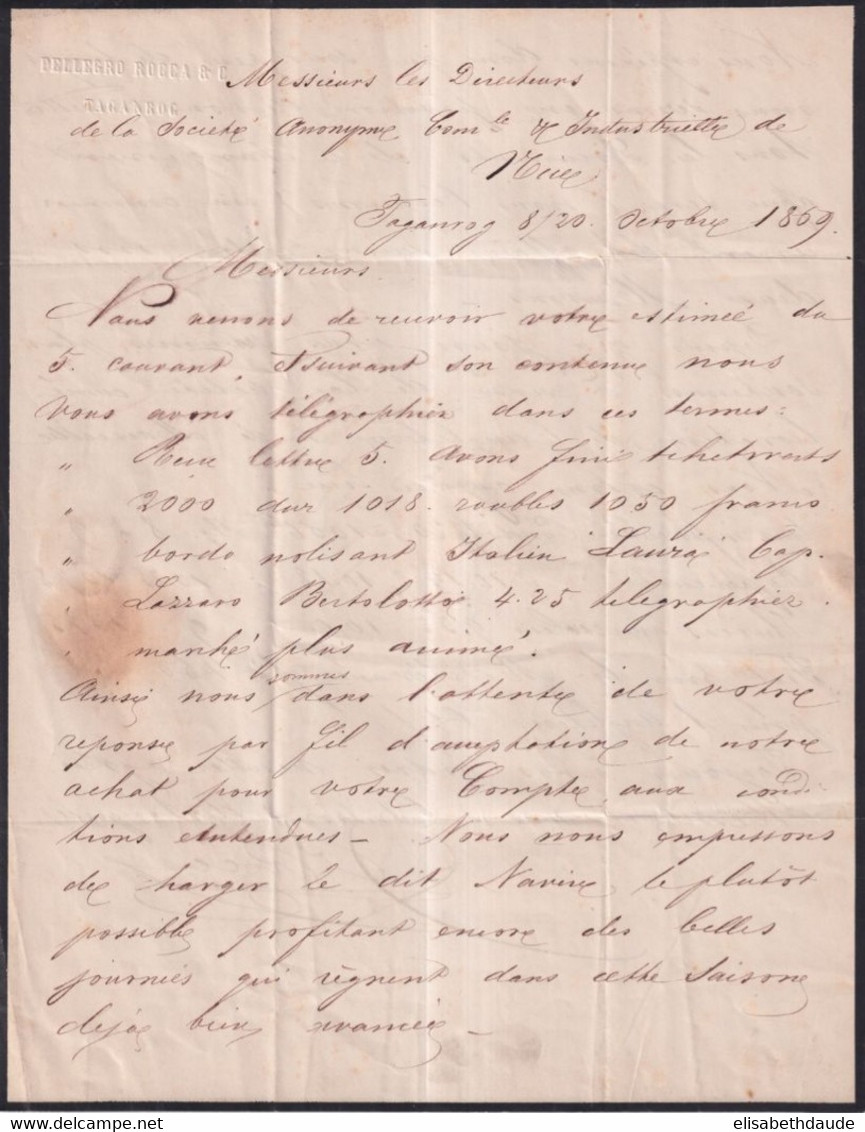 PELLEGRO ROCCA & C.
TAGANROG
Messieurs les Directeurs
de la Société Anonyme Com.le & Industrielle de
Nice
Taganrog 8/20. Octobre 1869.
Messieurs
Nous venons de recevoir votre estimée du
5. courant, & suivant son contenu nous
vous avons télégraphiez dans ces termes:
" Recu lettre 5. avons fini tchetwerts
" 2000 dur 1018. roubles 1050 francs
" bordo nolisant Italien Laura Cap.
" Lazzaro Bertolotto 4.25 telegraphiez.
" marché plus animé.
Ainsi nous sommes dans l'attente de votre
reponse par fil d'acceptation de notre
achat pour votre Compte aux condi
tions entendues — Nous nous empressons
de charger le dit Navire le plutôt
possible profitant encore des belles
journées qui règnent dans cette saison
dejà bien avancée —
elisabethdaude